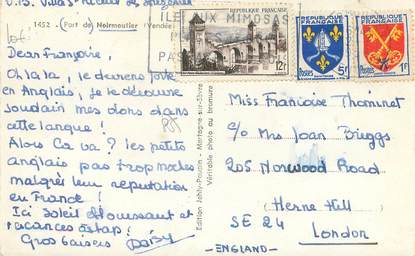 1452 - (Port de Noirmoutier (Vendée
ILE AUX MIMOSAS
RÉPUBLIQUE FRANÇAISE
12F
RÉPUBLIQUE FRANÇAISE
5F
RÉPUBLIQUE FRANÇAISE
1F
Dear Françoise,
Oh la la, je deviens forte
en Anglais, je le découvre
soudain mes dons dans
cette langue !
Alors Ca va ? les petits
anglais pas trop moches
malgré leur reputation
en France !
Ici Soleil étouffant et
vacances astap !
Gros baisers Daisy
Edition Jehly-Poupin - Mortagne-sur-Sèvre
Véritable photo au bromure
Miss Françoise Thominet
c/o Mrs Joan Brieggs
205 Norwood Road
(Herne Hill
SE 24
London
-ENGLAND-